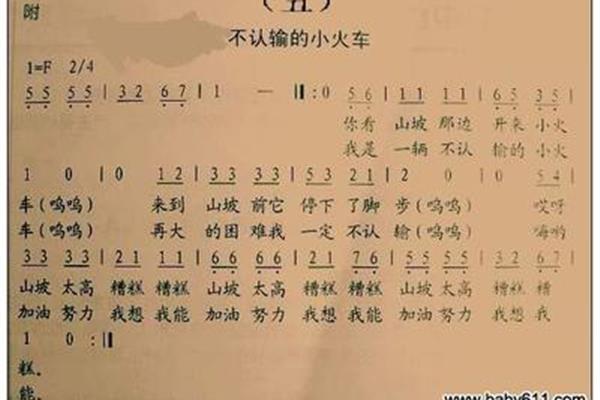 附
（五）
不认输的小火车
1=F 2/4
5 5 5 5 | 3 2 6 7 | 1 — ‖: 0 5 6 | 1 1 1 1 | 6 5 3 5 |
你看 山坡 那边 开来 小火
我是 一辆 不认 输的 小火
1 0 | 0 1 2 | 3 3 3 3 | 5 3 2 1 | 2 0 | 0 5 4 |
车(呜呜) 来到 山坡 前它 停下 了脚 步(呜呜) 哎呀
车(呜呜) 再大 的困 难我 一定 不认 输(呜呜) 嗨哟
3 3 3 3 | 2 1 1 2 | 6 6 6 6 | 2 1 7 6 | 5 5 5 5 | 3 2 6 7 |
山坡 太高 糟糕 糟糕 山坡 太高 糟糕 糟糕 山坡 太高 糟糕 糟
加油 努力 我想 我能 加油 努力 我想 我能 加油 努力 我想 我
1 0 :‖
糕。
能。
www.baby611.com